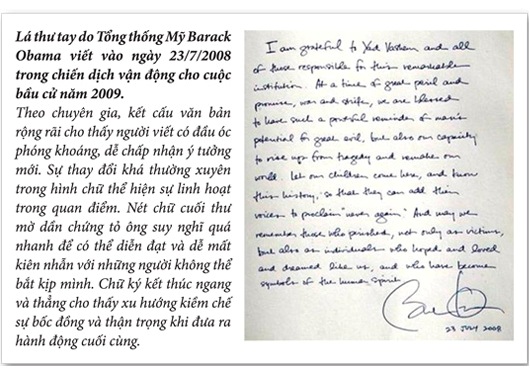 Lá thư tay do Tổng thống Mỹ Barack
Obama viết vào ngày 23/7/2008
trong chiến dịch vận động cho cuộc
bầu cử năm 2009.
Theo chuyên gia, kết cấu văn bản
rộng rãi cho thấy người viết có đầu óc
phóng khoáng, dễ chấp nhận ý tưởng
mới. Sự thay đổi khá thường xuyên
trong hình chữ thể hiện sự linh hoạt
trong quan điểm. Nét chữ cuối thư
mờ dần chứng tỏ ông suy nghĩ quá
nhanh để có thể diễn đạt và dễ mất
kiên nhẫn với những người không thể
bắt kịp mình. Chữ ký kết thúc ngang
và thẳng cho thấy xu hướng kiềm chế
sự bốc đồng và thận trọng khi đưa ra
hành động cuối cùng.
I am grateful to Yad Vashem and all
of those responsible for this remarkable
institution. At a time of great peril and
promise, war and strife, we are blessed
to have such a powerful reminder of man's
potential for great evil, but also our capacity
to rise up from tragedy and remake our
world. Let our children come here, and know
this history, so that they can add their
voices to proclaim "never again." And may we
remember those who perished, not only as victims,
but also as individuals who hoped and loved
and dreamed like us, and who have become
symbols of the human spirit.
23 JULY 2008